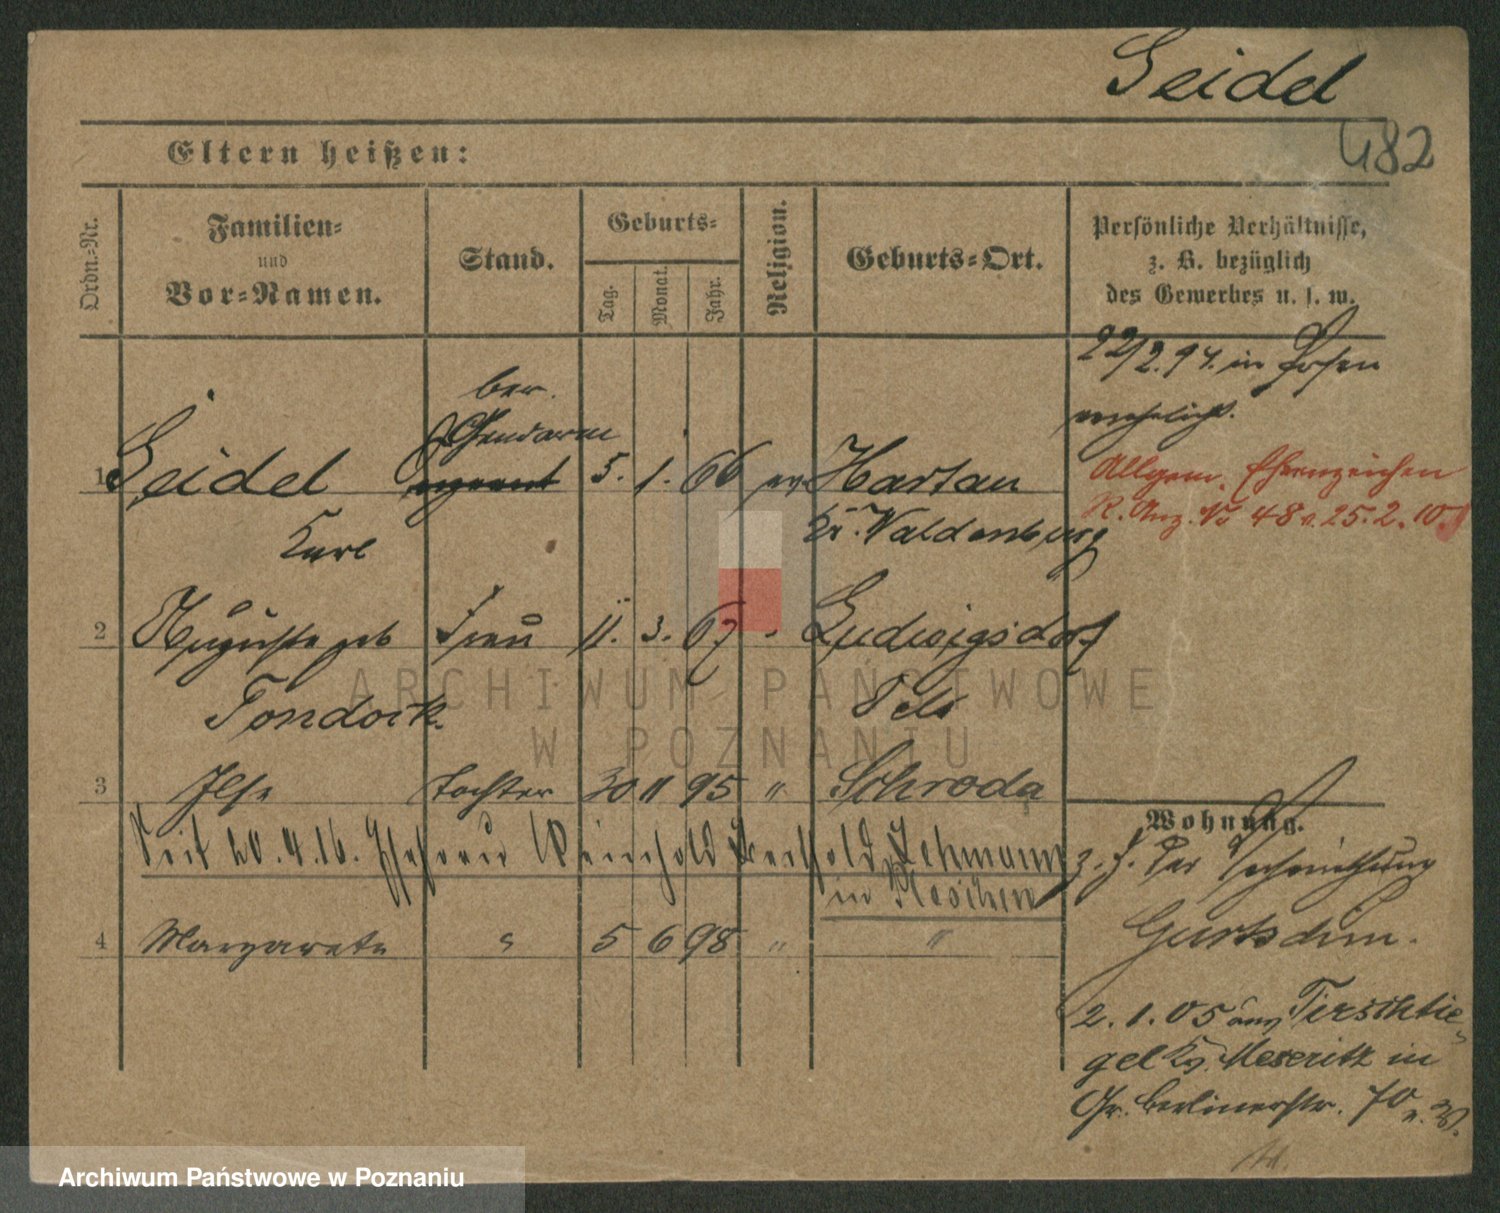 Seidel
482
Eltern heißen:
Ordn.-Nr.
Familien-
und
Vor-Namen.
Stand.
Geburts-
Tag.
Monat.
Jahr.
Religion.
Geburts-Ort.
Persönliche Verhältnisse,
z. B. bezüglich
des Gewerbes u. s. w.
22/2.94. in Posen
verehelicht.
ber.
Gendarm
1 Seidel 5. 1. 66 ev. Hartau
Karl Kr. Waldenburg
Allgem. Ehrenzeichen
R. Anz. No 48 v. 25.2.10
2 Auguste geb Frau 11. 3. 67 " Ludwigsdorf
Tondock. Oels
3 Ilse Tochter 30 11 95 " Schroda
Seit 20.4.16. Ehefrau Reinhold Berthold Lehmann
in Pleschen
4 Margarete " 5 6 98 " "
Wohnung.
z. Z. der
2.1.05 aus Tirschtie-
gel Kr. Meseritz in
Gr. Berlinerstr. 70
ARCHIWUM PAŃSTWOWE
W POZNANIU
Archiwum Państwowe w Poznaniu